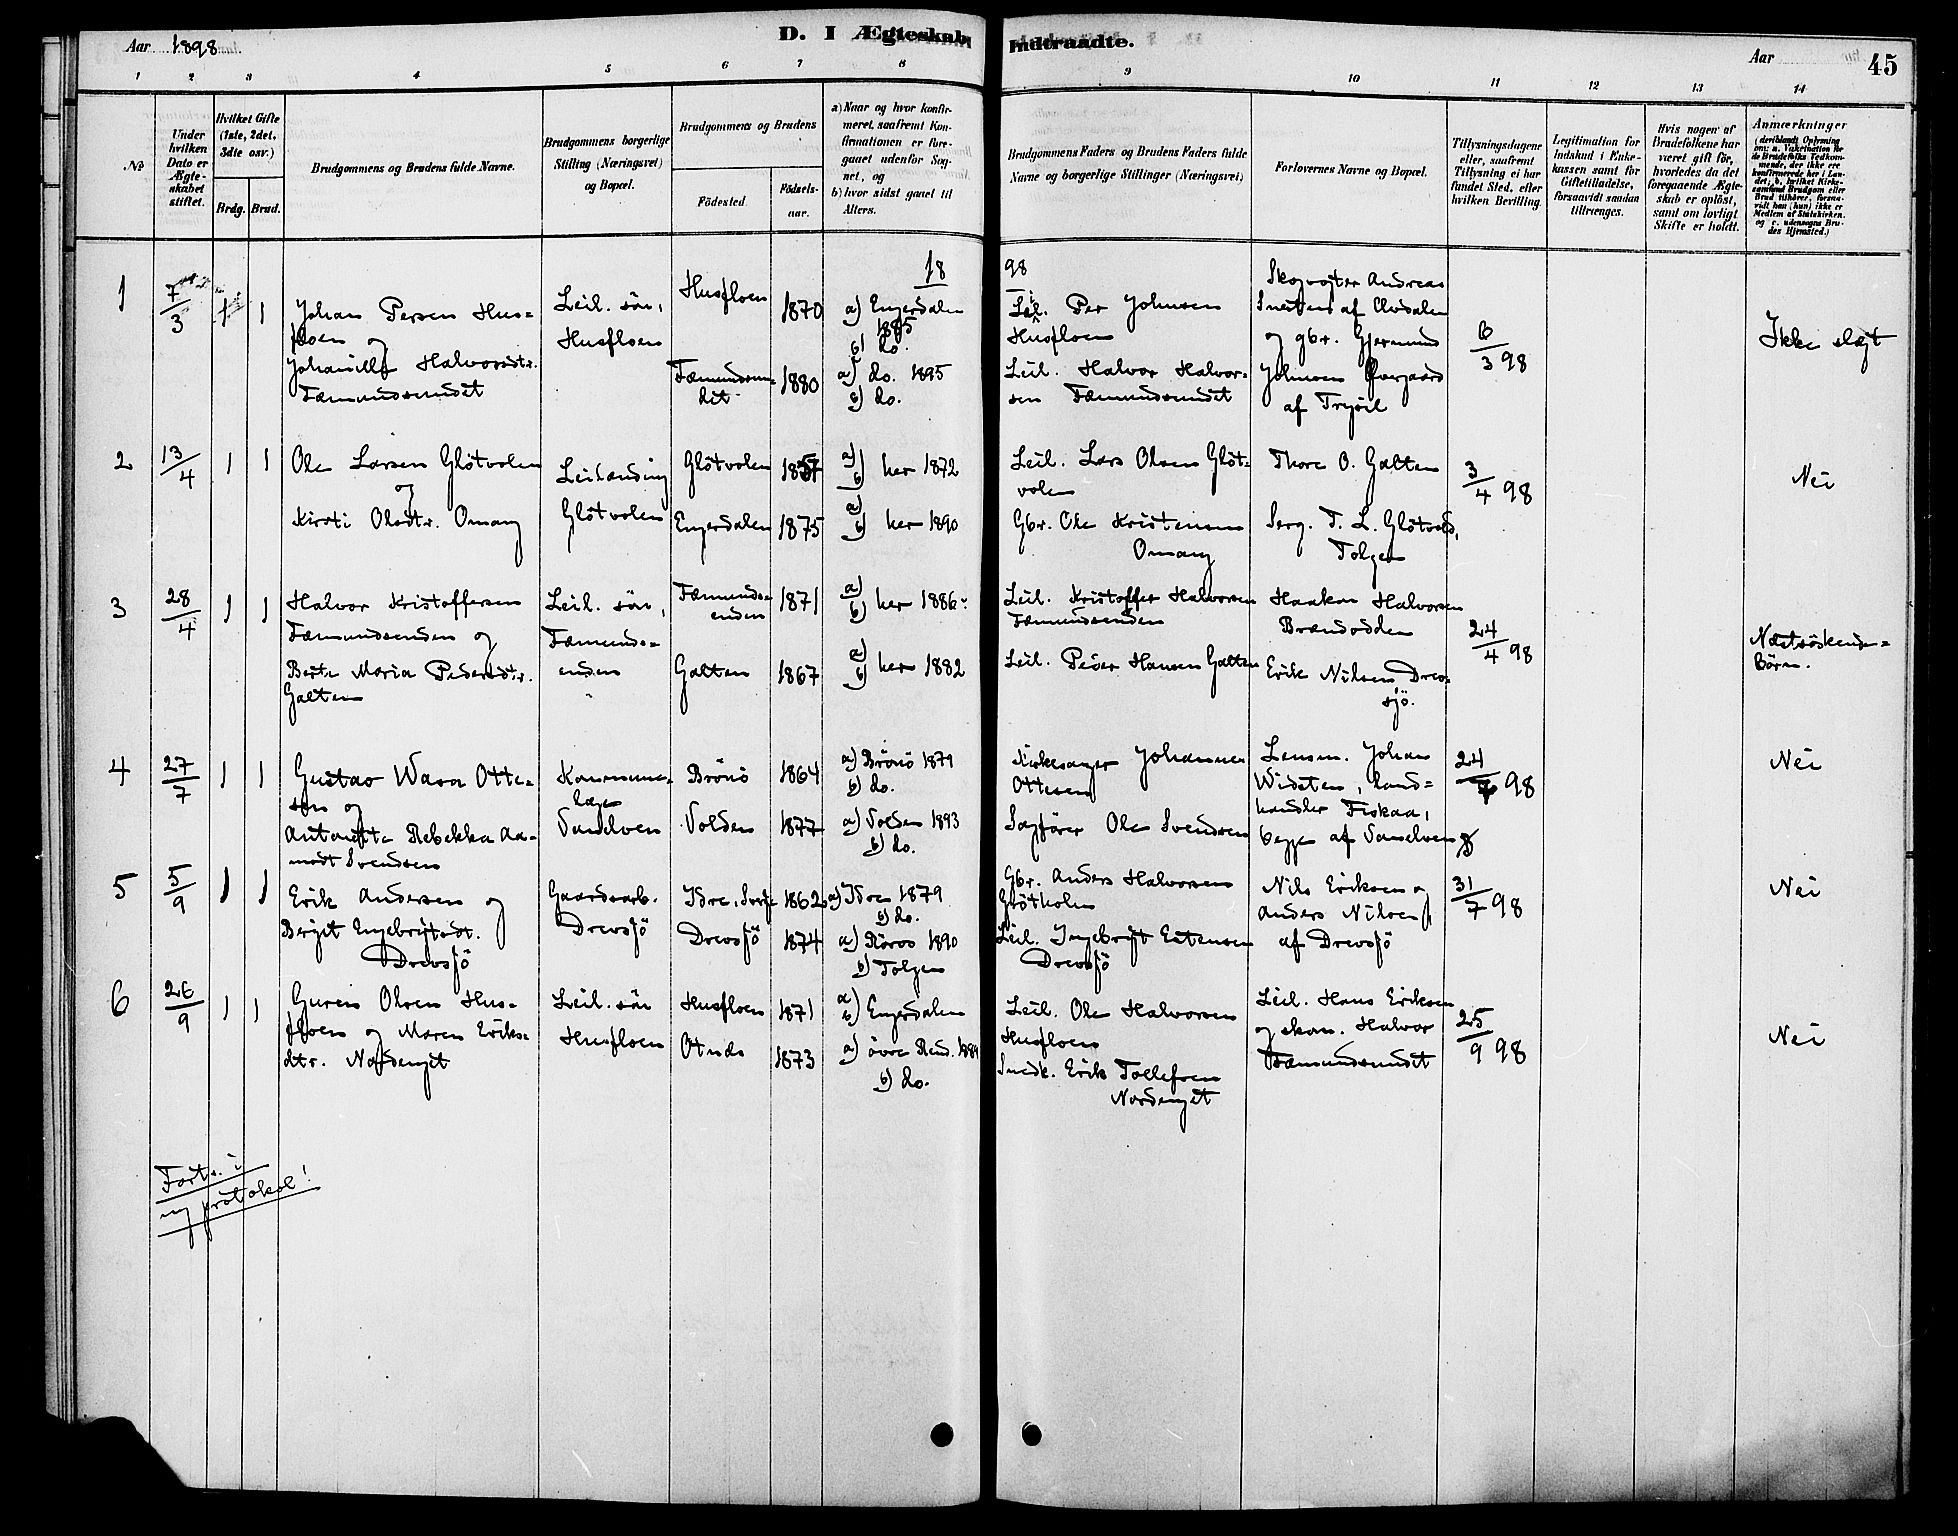 Aar 1898
D. I Ægteskab Indtraadte.
Aar
45
1 2 3 4 5 6 7 8 9 10 11 12 13 14
No
Under hvilken Dato er Ægteskabet stiftet.
Hvilket Gifte (1ste, 2det, 3dte osv.)
Brdg. Brud.
Brudgommens og Brudens fulde Navne.
Brudgommens borgerlige Stilling (Næringsvei) og Bopæl.
Brudgommens og Brudens
Födested
Födsels-aar.
a) Naar og hvor konfirmeret, saafremt Konfirmationen er foregaaet udenfor Sognet, og
b) hvor sidst gaaet til Alters.
Brudgommens Faders og Brudens Faders fulde Navne og borgerlige Stillinger (Næringsvei)
Forlovernes Navne og Bopæl.
Tillysningsdagene eller, saafremt Tillysning ei har fundet Sted, efter hvilken Bevilling.
Legitimation for Indskud i Enkekassen samt for Giftetilladelse, forsaavidt saadan tiltrænges.
Hvis nogen af Brudefolkene har været gift før, hvorledes da det foregaaende Ægteskab er oplöst, samt om lovligt Skifte er holdt.
Anmærkninger
(deriblandt Oplysning om: a. Vakcination for de Brudefolks Vedkommende, der ikke ere konfirmerede her i Landet; b. hvilket Kirkesamfund Brudgom eller Brud tilhörer, forsaavidt han (hun) ikke er Medlem af Statskirken, og c. udensogns Brudes Hjemsted.)
1898
1
7/3
1 1
Johan Persen Hus=
floen og
Halvorsdtr.
Fæmundsundet
Leil. sön,
Husfloen
Husfloen
1870
Fæmundsun-
det
1880
a) Engerdalen
1885
b) do.
a) do. 1895
b) do.
Leil. Per Johnsen
Husfloen
Leil. Halvor Halvor-
sen Fæmundsundet
Skogvogter Andreas
af
og gbr. Gjermund
Johnsen
af Trysil
6/3 98
Ikke slægt
2
13/4
1 1
Ole Larsen Glötvolen
og
Kirsti Olsdtr. Omang
Leilænding
Glötvolen
Glötvolen
Engerdalen
1875
a)
b) her 1872
a)
b) her 1890
Leil. Lars Olsen Glöt-
volen
Gbr. Ole Kristensen
Omang
Thore O. Galten
Serg. T. L. Glötvold,
Tolgen
3/4 98
Nei
3
28/4
1 1
Halvor Kristoffersen
Fæmundsenden og
Berte Maria Pedersdtr.
Galten
Leil. sön,
Fæmunds-
enden
Fæmunds-
enden
1871
Galten
1867
a)
b) her 1886
a)
b) her 1882
Leil. Kristoffer Halvorsen
Fæmundsenden
Leil. Peder Hansen Galten
Haakon Halvorsen
Brændodden
Erik Nilsen Drev-
sjö.
24/4 98
Næstsöskende=
Börn.
4
27/7
1 1
Gustav Wasa Otte=
sen og
Rebekka Aa-
modt Svendsen
Kommune-
læge
Sandelven
Brönö
1864
Volden
1877
a) Brönö 1879
b) do.
a) Volden 1893
b) do.
Kirkesanger Johannes
Ottesen
Sagförer Ole Svendsen
Lensm. Johan
Widsten, land=
handler Fiskaa,
begge af Sandelven
24/7 98
Nei
5
5/9
1 1
Erik Andersen og
Berget Engebrigtsdt.
Drevsjö
Gaardsarb.
Drevsjö
Idre, Sverige
1862
Drevsjö
1874
a) Idre 1879
b) do.
a) Röros 1890
b) Tolgen
Gbr. Anders Halvorsen
Glötholm
Leil. Ingebrigt Estensen
Drevsjö
Nils Eriksen og
Anders Nilsen
af Drevsjö
31/7 98
Nei
6
26/9
1 1
Guren Olsen Hus-
floen og Maren Eriks-
dtr. Nordenget
Leil. sön
Husfloen
Husfloen
1871
Otnes
1873
a)
b) Engerdalen
a) övre Rend. 1889
b) do.
Leil. Ole Halvorsen
Husfloen
Snedk. Erik Tollefsen
Nordenget
Leil. Hans Eriksen
og skom. Halvor
Fæmundsundet
25/9 98
Nei
Forts. i
ny protokol!